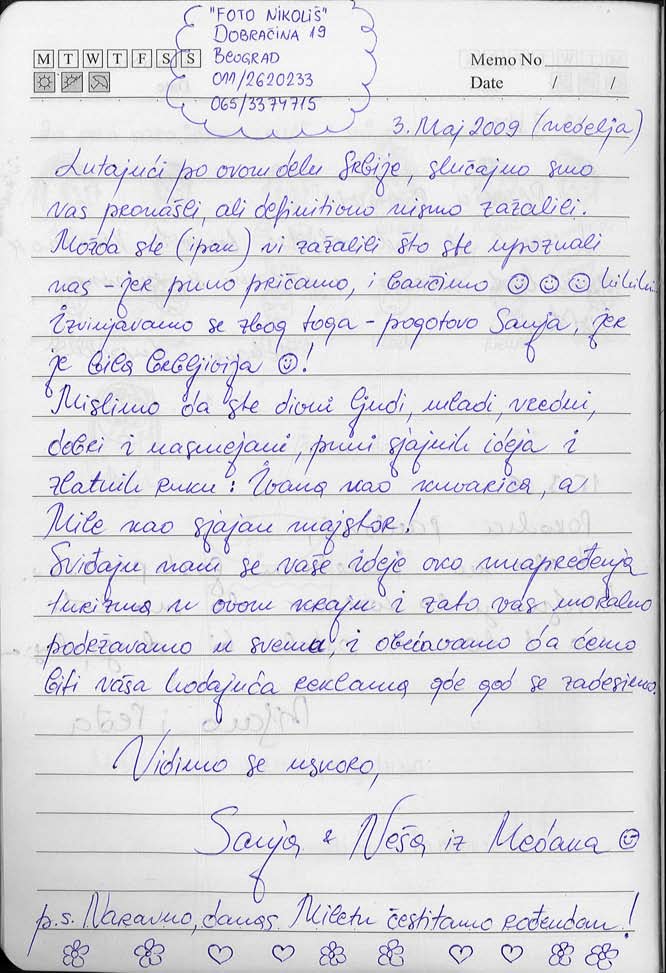 "FOTO NIKOLIŠ"
DOBRAČINA 19
BEOGRAD
011/2620233
065/3374715
M T W T F S S
Memo No
Date / /
3. Maj 2009 (nedelja)
Lutajući po ovom delu Srbije, slučajno smo
vas pronašli, ali definitivno nismo zažalili.
Možda ste (ipak) vi zažalili što ste upoznali
nas – jer puno pričamo, i bančimo ☺ ☺ ☺ hihihi
Izvinjavamo se zbog toga – pogotovo Sanja, jer
je bila brbljivija ☺!
Mislimo da ste divni ljudi, mladi, vredni,
dobri i nasmejani, puni sjajnih ideja i
zlatnih ruku: Ivana kao kuvarica, a
Mile kao sjajan majstor!
Sviđaju nam se vaše ideje oko unapređenja
turizma u ovom kraju i zato vas moralno
podržavamo u svemu, i obećavamo da ćemo
biti vaša hodajuća reklama gde god se zadesimo.
Vidimo se uskoro,
Sanja & Neša iz Medana ☺
p.s. Naravno, danas Miletu čestitamo rođendan!